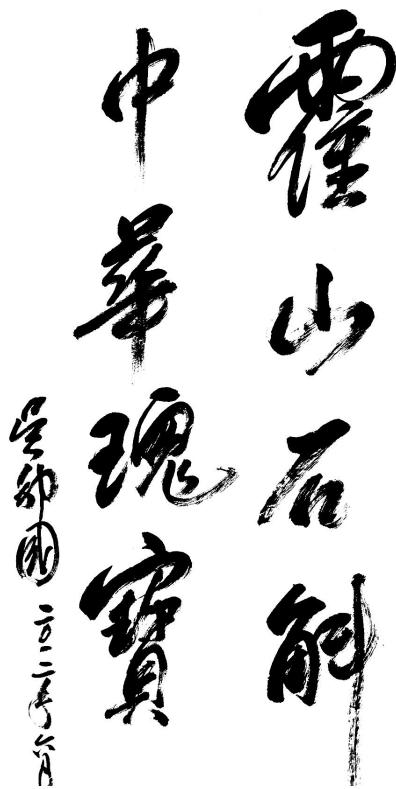 霍山石斛
中華瑰寶
吳邦國
二〇一二年六月